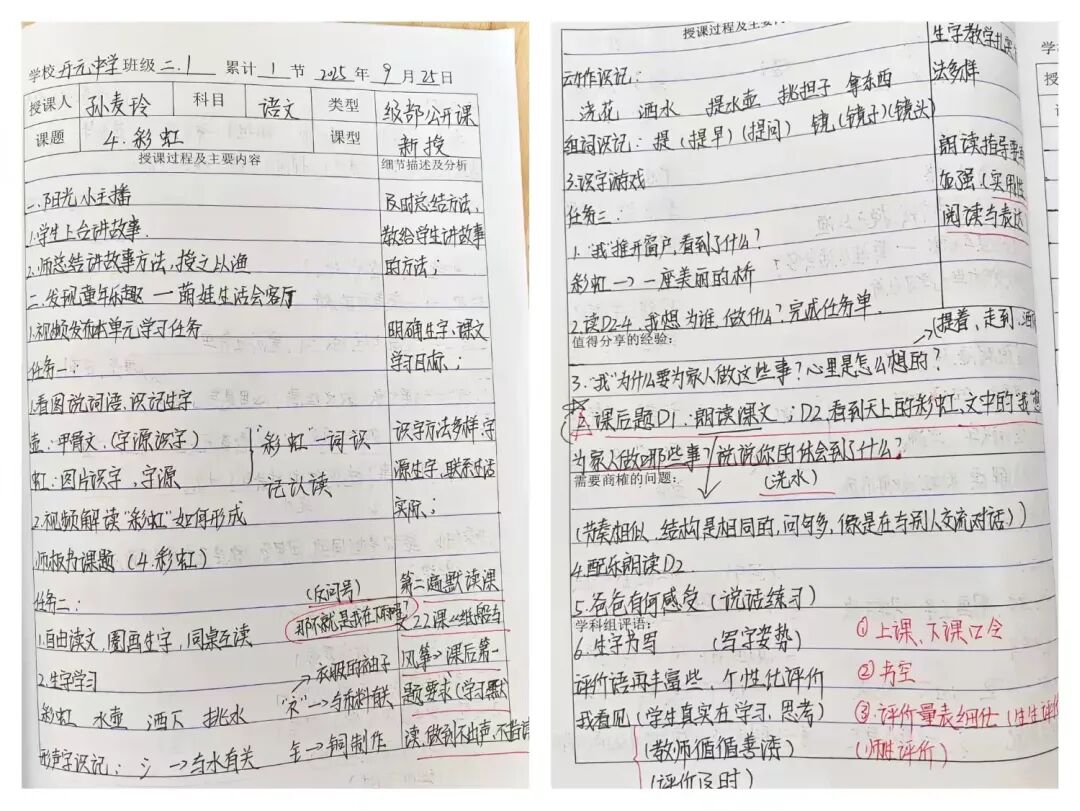 学校 开元中学 班级 二.1 累计 1 节 2025 年 9 月 25 日
授课人 孙麦玲 科目 语文 类型 级部公开课
课题 4.彩虹 课型 新授
授课过程及主要内容 细节描述及分析
一.阳光小主播 及时总结方法,
1.学生上台讲故事. 教给学生讲故事
2.师总结讲故事方法,授之以渔 的方法;
二.发现童年乐趣 — 萌娃生活会客厅
1.视频发布本单元学习任务 明确生字、课文
任务一: 学习目标;
1.看图说词语,识记生字
壶:甲骨文.(字源识字) "彩虹"一词识 识字方法多样,字
虹:图片识字,字源 记认读 源生字,联系生活
2.视频解读"彩虹"如何形成 实际;
师板书课题(4.彩虹)
任务二: (反问号) 第二遍默读课
1.自由读文,圈画生字,同桌互读 那不就是我在下雨吗? 文22课《纸船与
2.生字学习 衣服的袖子 风筝》课后第一
彩虹 水壶 洒下 挑水 "衤"→与布料有关 题要求(学习默
形声字识记:氵→与水有关 钅→铜制作 读,做到不出声,不指读
授课过程及主要内
生字教学扎实
动作识记: 法多样
浇花 洒水 提水壶 挑担子 拿东西
组词识记:提(提早)(提问) 镜(镜子)(镜头)
3.识字游戏 朗读指导要
任务三: 加强(实用性
1."我"推开窗户,看到了什么? 阅读与表达
彩虹→一座美丽的桥
2.读D2-4,我想为谁,做什么?完成任务单.
值得分享的经验: (提着、走到、洒
3."我"为什么要为家人做这些事?心里是怎么想的?
课后题D1:朗读课文;D2.看到天上的彩虹、文中的"我"想
为家人做哪些事?说说你的体会到了什么?
需要商榷的问题: (浇水)
(节奏相似,结构是相同的,问句多,像是在与别人交流对话)
4.配乐朗读D2
5.爸爸有何感受.(说话练习)
学科组评语: ①上课、下课口令
6.生字书写 (写字姿势)
评价语再丰富些、个性化评价 ②书空
我看见(学生真实在学习,思考) ③.评价量表细化(生生评价
(教师循循善诱) (师生评价)
(评价及时)